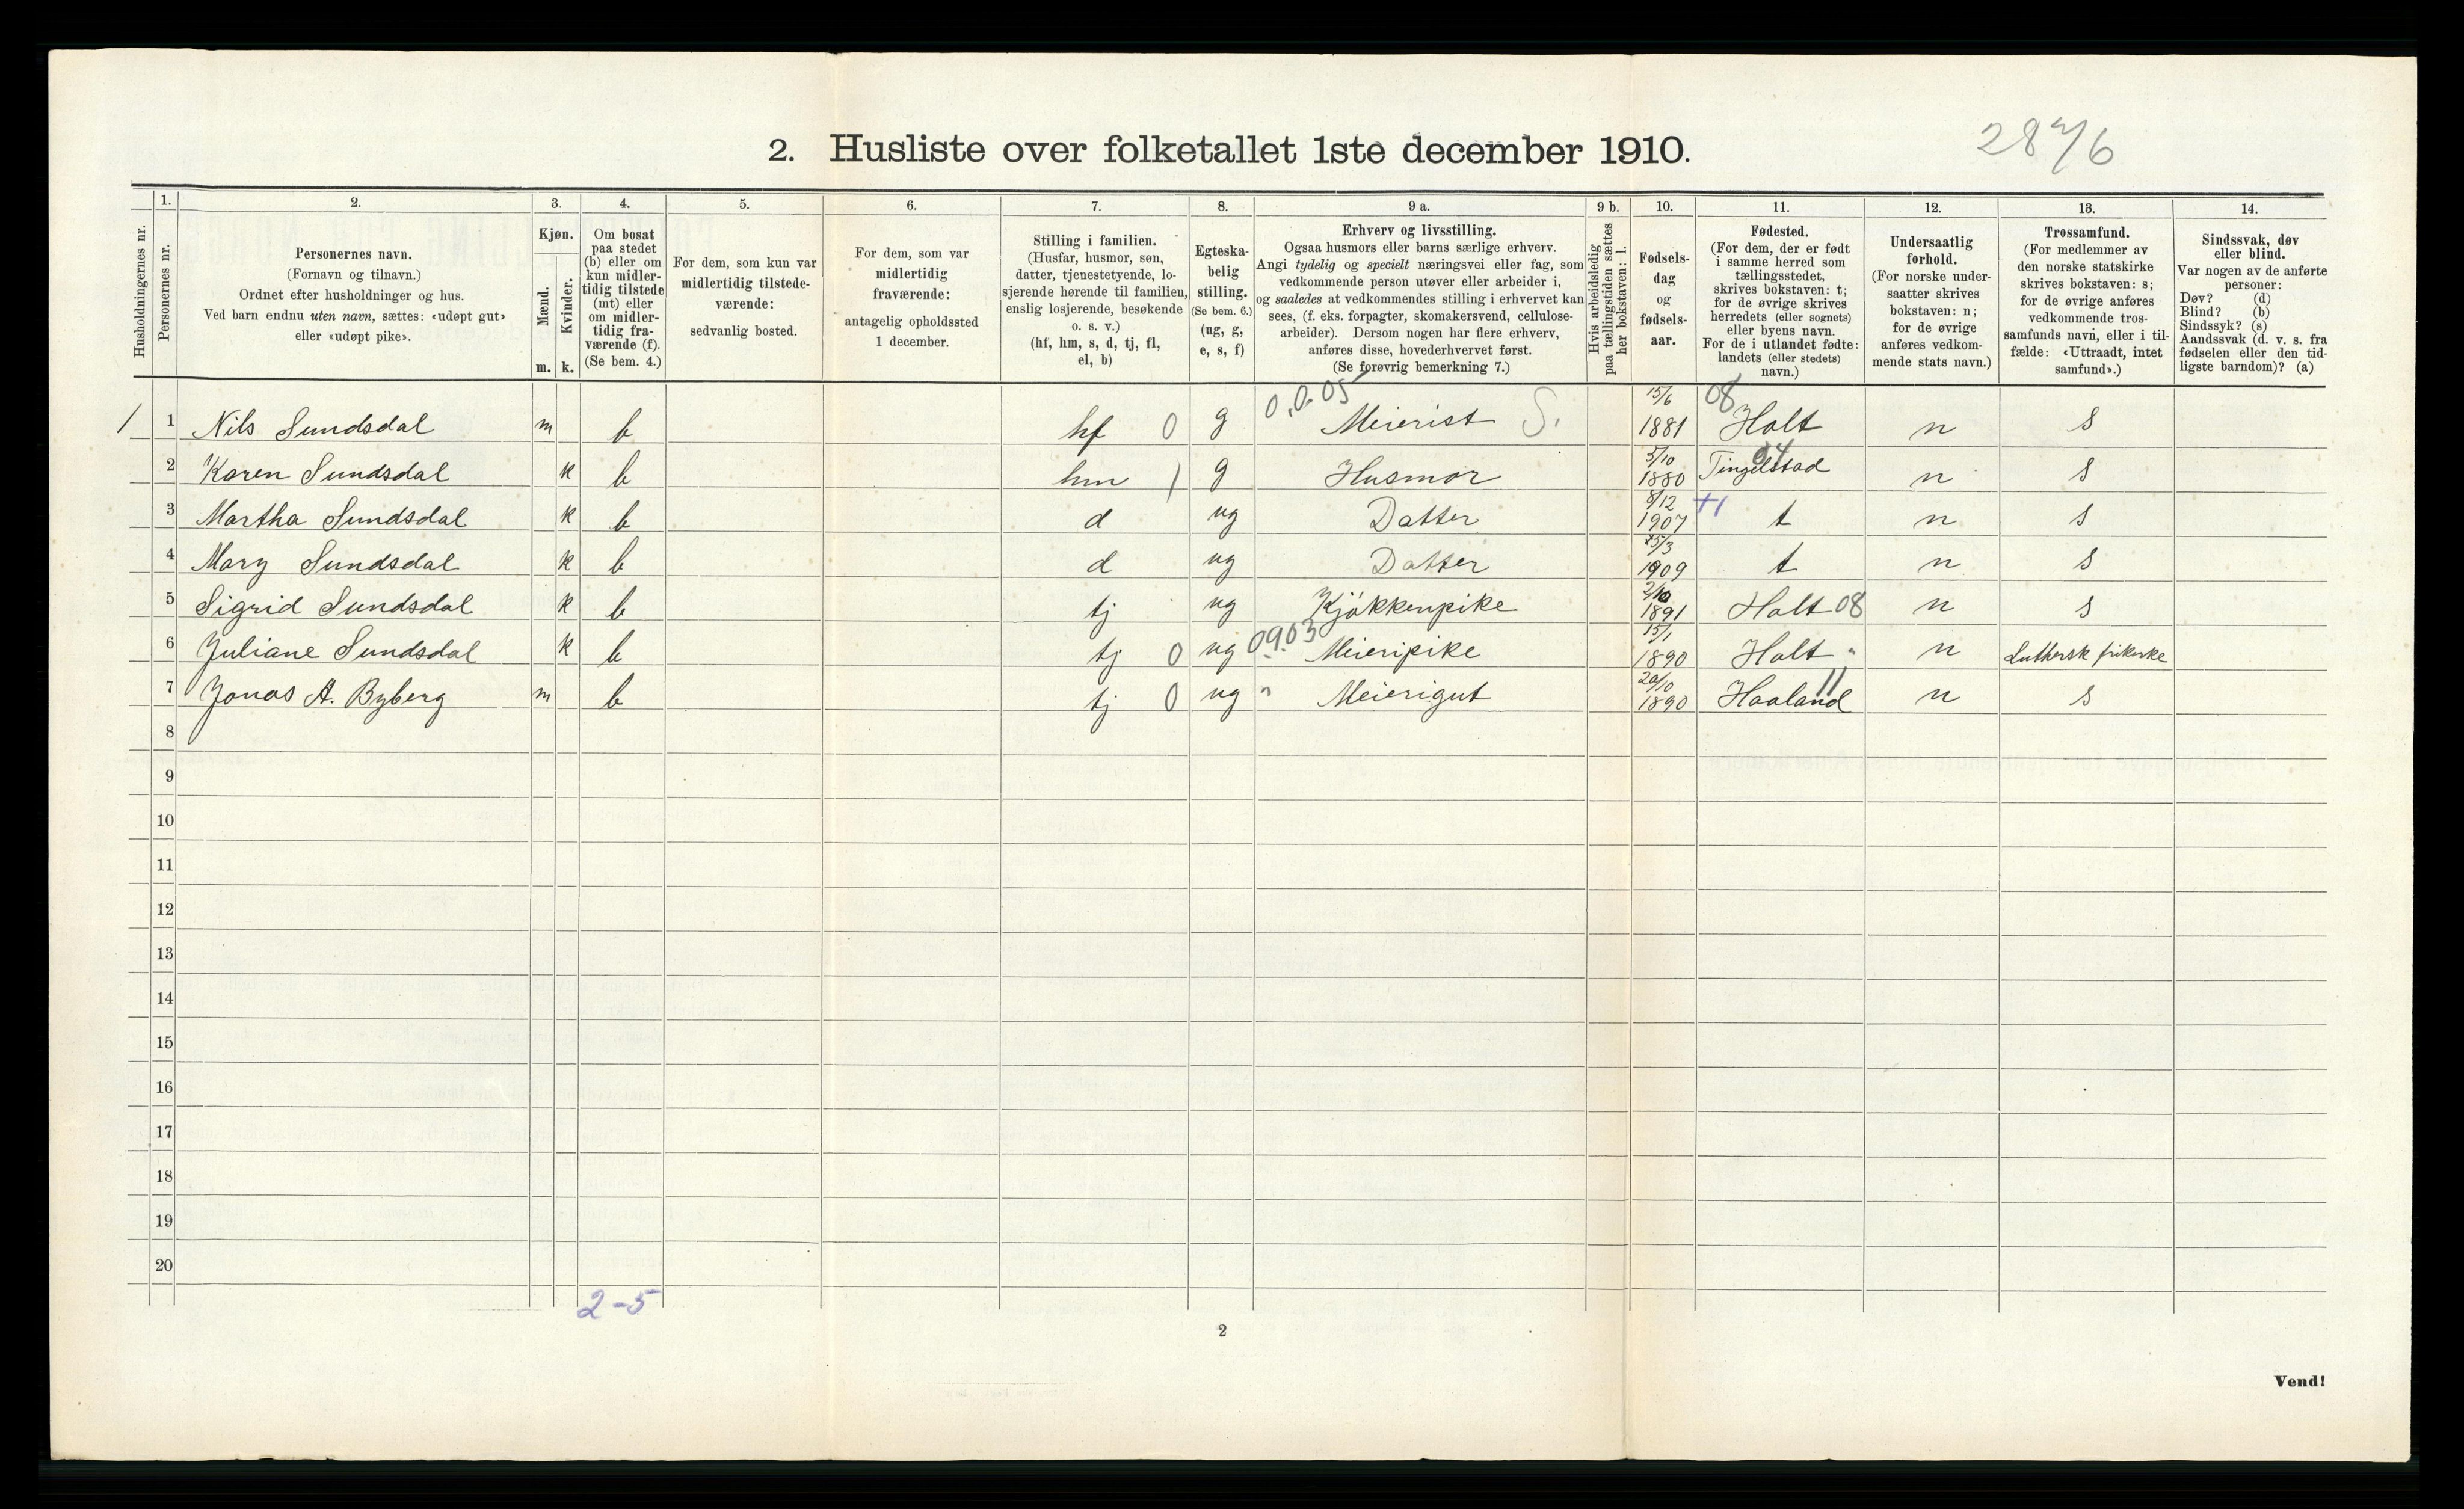 2. Husliste over folketallet 1ste december 1910.
Husholdningernes nr.
1.
Personernes nr.
2.
Personernes navn.
(Fornavn og tilnavn.)
Ordnet efter husholdninger og hus.
Ved barn endnu uten navn, sættes: «udøpt gut»
eller «udøpt pike».
3.
Kjøn.
Mænd.
Kvinder.
m. k.
4.
Om bosat
paa stedet
(b) eller om
kun midler-
tidig tilstede
(mt) eller
om midler-
tidig fra-
værende (f).
(Se bem. 4.)
5.
For dem, som kun var
midlertidig tilstede-
værende:
sedvanlig bosted.
6.
For dem, som var
midlertidig
fraværende:
antagelig opholdssted
1 december.
7.
Stilling i familien.
(Husfar, husmor, søn,
datter, tjenestetyende, lo-
sjerende hørende til familien,
enslig losjerende, besøkende
o. s. v.)
(hf, hm, s, d, tj, fl,
el, b)
8.
Egteska-
belig
stilling.
(Se bem. 6.)
(ug, g,
e, s, f)
9 a.
Erhverv og livsstilling.
Ogsaa husmors eller barns særlige erhverv.
Angi tydelig og specielt næringsvei eller fag, som
vedkommende person utøver eller arbeider i,
og saaledes at vedkommendes stilling i erhvervet kan
sees, (f. eks. forpagter, skomakersvend, cellulose-
arbeider). Dersom nogen har flere erhverv,
anføres disse, hovederhvervet først.
(Se forøvrig bemerkning 7.)
9 b.
Hvis arbeidsledig
paa tællingstiden sættes
her bokstaven: l.
10.
Fødsels-
dag
og
fødsels-
aar.
11.
Fødested.
(For dem, der er født
i samme herred som
tællingsstedet,
skrives bokstaven: t;
for de øvrige skrives
herredets (eller sognets)
eller byens navn.
For de i utlandet fødte:
landets (eller stedets)
navn.)
12.
Undersaatlig
forhold.
(For norske under-
saatter skrives
bokstaven: n;
for de øvrige
anføres vedkom-
mende stats navn.)
13.
Trossamfund.
(For medlemmer av
den norske statskirke
skrives bokstaven: s;
for de øvrige anføres
vedkommende tros-
samfunds navn, eller i til-
fælde: «Uttraadt, intet
samfund».)
14.
Sindssvak, døv
eller blind.
Var nogen av de anførte
personer:
Døv? (d)
Blind? (b)
Sindssyk? (s)
Aandssvak (d. v. s. fra
fødselen eller den tid-
ligste barndom)? (a)
1 1 Nils Sundsdal m b hf 0 g 0.0.05 Meierist S. 15/6 1881 08 Holt n s
2 Karen Sundsdal k b hm 1 g Husmor 5/10 1880 Tingelstad 04 n s
3 Martha Sundsdal k b d ug Datter 8/12 1907 +1 t n s
4 Mary Sundsdal k b d ug Datter 25/3 1909 t n s
5 Sigrid Sundsdal k b tj ug Kjøkkenpike 2/10 1891 Holt 08 n s
6 Juliane Sundsdal k b tj 0 ug 09.03 Meieripike 15/1 1890 Holt " n Luthersk frikirke
7 Jonas A. Byberg m b tj 0 ug " Meierigut 20/10 1890 Haaland 11 n s
8
9
10
11
12
13
14
15
16
17
18
19
20
2-5
2
Vend!